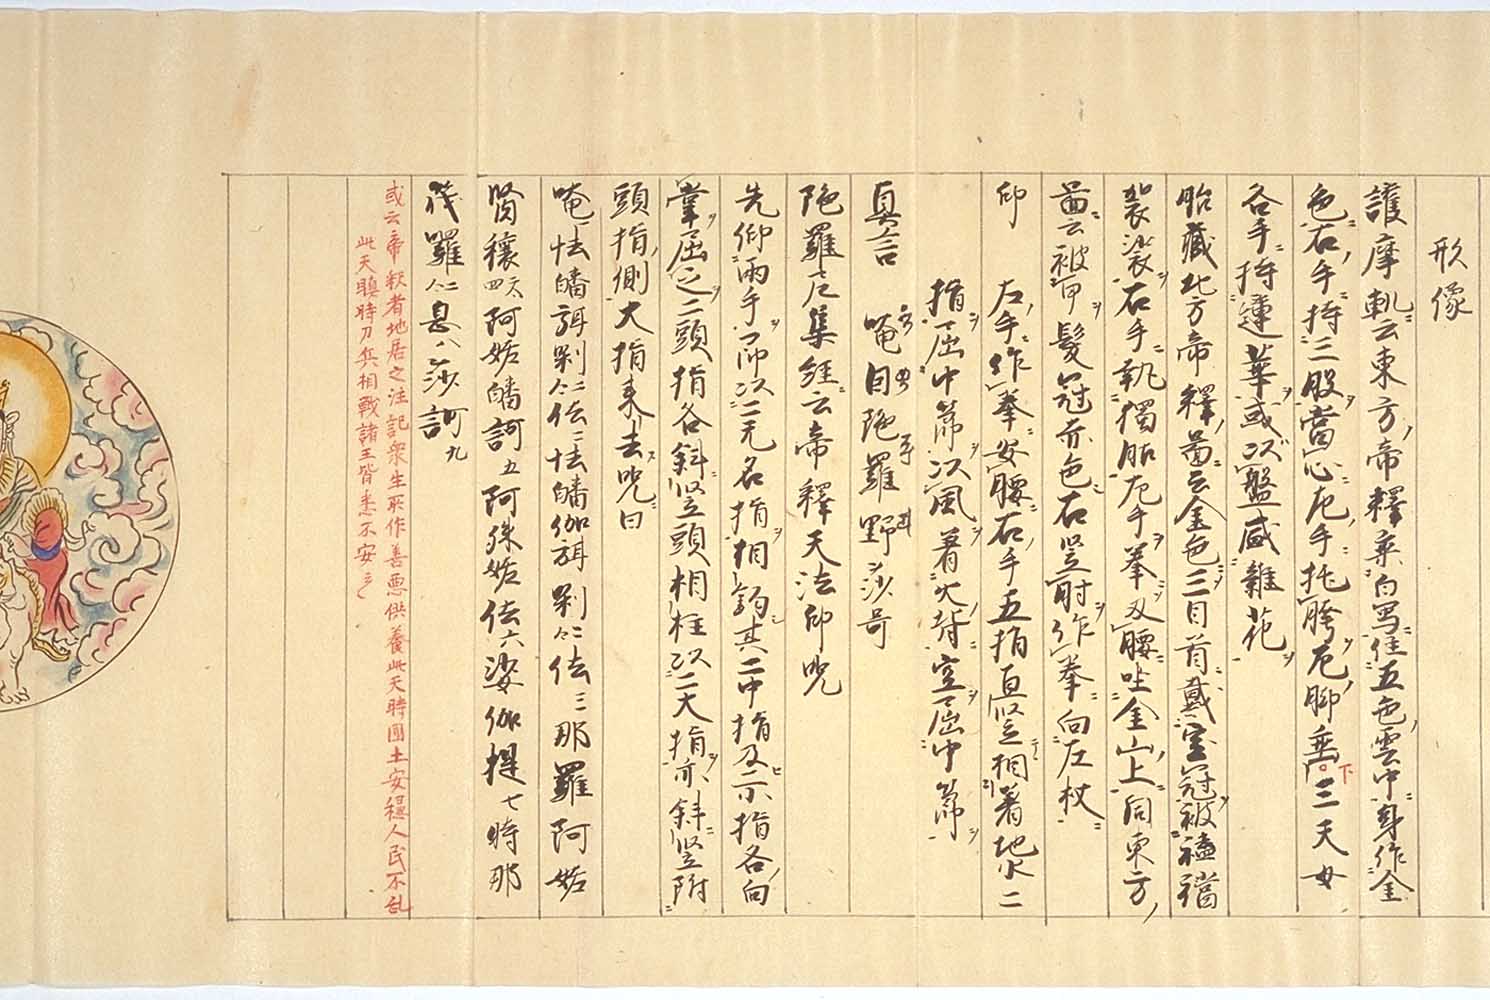 形像
護摩軌云東方帝釋乘白烏住五色雲中身作金
色右手持三股當心左手托胯左脚垂下三天女
各手持蓮華或以盤盛雜花
胎藏北方帝釋圖云金色三目首戴寶冠被褴襠
袈裟右手執獨股左手拳叉腰坐金山上同東方
圖云被甲髮冠赤色右竪肘作拳向左杖
印　左手作拳安腰右手五指直竪相著地水二
指屈中節以風著火背空屈中節
真言　唵因陀羅野莎呵
陀羅尼集經云帝釋天法印呪
先仰兩手即以二无名指相鉤其二中指及小指各向
掌屈之二頭指各斜竪頭相柱以二大指亦斜竪附
頭指側大指来去呪曰
唵怯皤訶剃佉怯皤伽訶剃佉三那羅阿姤
醫穰四阿姤皤訶五阿殊姤佉六娑伽提七時那
筏羅息八莎訶九
或云帝釈者地居之注記衆生所作善悪供養此天時国土安穏人民不乱
此天瞋時刀兵相戰諸王皆悉不安云々